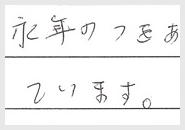 永年のつきあ
ています。